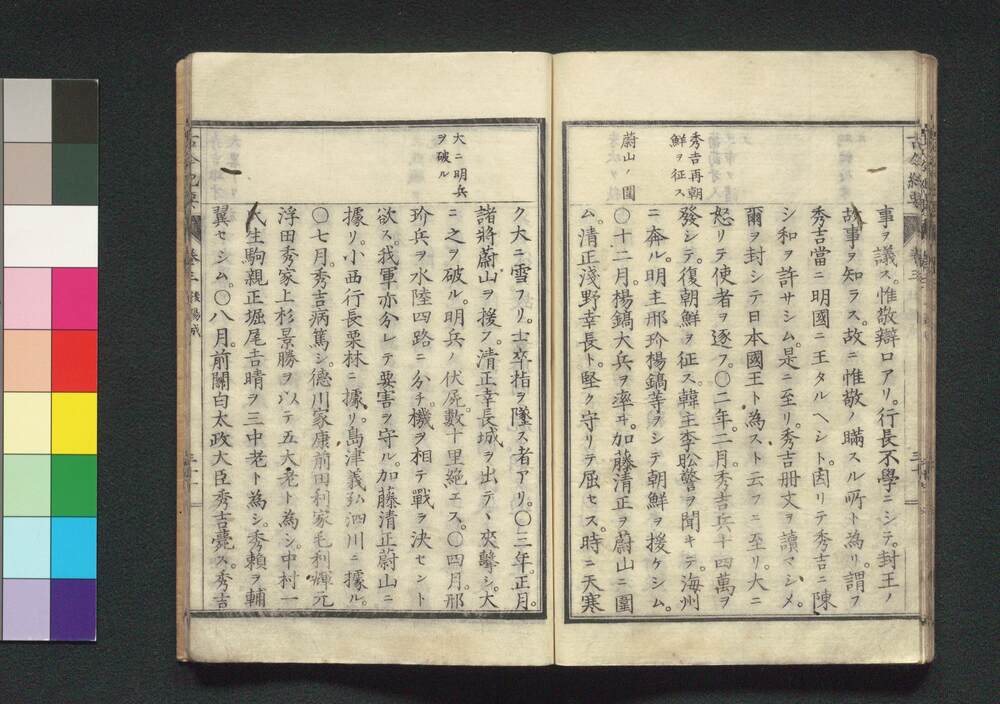 秀吉再朝
鮮ヲ征ス
蔚山ノ圍
事ヲ議ス。惟敬辯口アリ。行長不學ニシテ。封王ノ
故事ヲ知ラス。故ニ惟敬ノ瞞スル所ト為リ。謂フ
秀吉當ニ明國ニ王タルヘシト。因リテ秀吉ニ陳
シ和ヲ許サシム。是ニ至リ。秀吉册文ヲ讀マシメ。
爾ヲ封シテ日本國王ト為スト云フニ至リ。大ニ
怒リテ使者ヲ逐フ。〇二年。二月。秀吉兵十四萬ヲ
發シテ。復朝鮮ヲ征ス。韓主李昖警ヲ聞キテ。海州
ニ奔ル。明主邢玠楊鎬等ヲシテ朝鮮ヲ援ケシム。
〇十二月。楊鎬大兵ヲ率ヰ。加藤清正ヲ蔚山ニ圍
ム。清正淺野幸長ト。堅ク守リテ屈セス。時ニ天寒
大ニ明兵
ヲ破ル
ク大ニ雪フリ。士卒指ヲ墜ス者アリ。〇三年。正月。
諸將蔚山ヲ援フ。清正幸長城ヲ出テヽ夾擊シ。大
ニ之ヲ破ル。明兵ノ伏屍數十里絕エス。〇四月。邢
玠兵ヲ水陸四路ニ分チ。機ヲ相テ戰ヲ決セント
欲ス。我軍亦分レテ要害ヲ守ル。加藤清正蔚山ニ
據リ。小西行長栗林ニ據リ。島津義弘泗川ニ據ル。
〇七月。秀吉病篤シ。德川家康前田利家毛利輝元
浮田秀家上杉景勝ヲ以テ五大老ト為シ。中村一
氏生駒親正堀尾吉晴ヲ三中老ト為シ。秀賴ヲ輔
翼セシム。〇八月。前關白太政大臣秀吉薨ス。秀吉